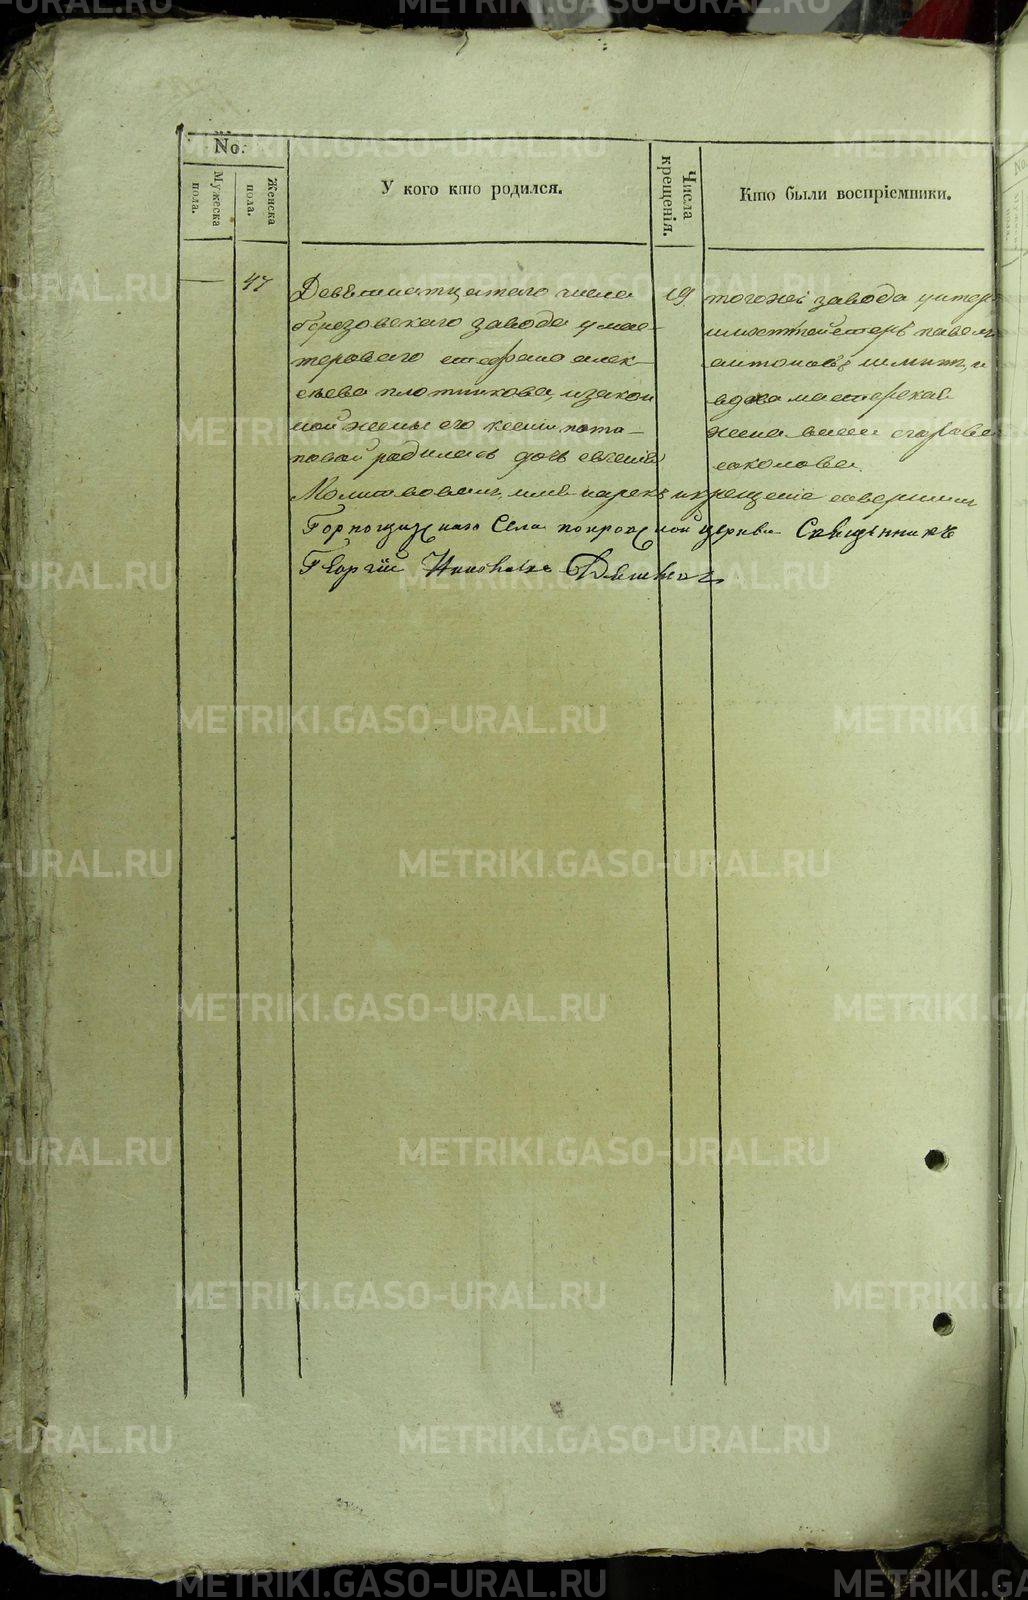 No.
Мужеска пола.
Женска пола.
У кого кто родился.
Числа крещенія.
Кто были воспріемники.
47
Девятнатцатаго числа
березовскаго завода у мас-
тероваго стефана алек-
сѣева плотникова, и закон
ной жены его ксении пота-
повой родилась дочь евгения
19
тогожъ завода унтер
шихтмейстеръ павелъ
антоновъ шмитъ, и
вдова мастерская
жена
соколова
Молитвовалъ, имя нарекъ и крещение совершилъ
Горнощитскаго Села покровской церкви Священникъ
Георгій
METRIKI.GASO-URAL.RU